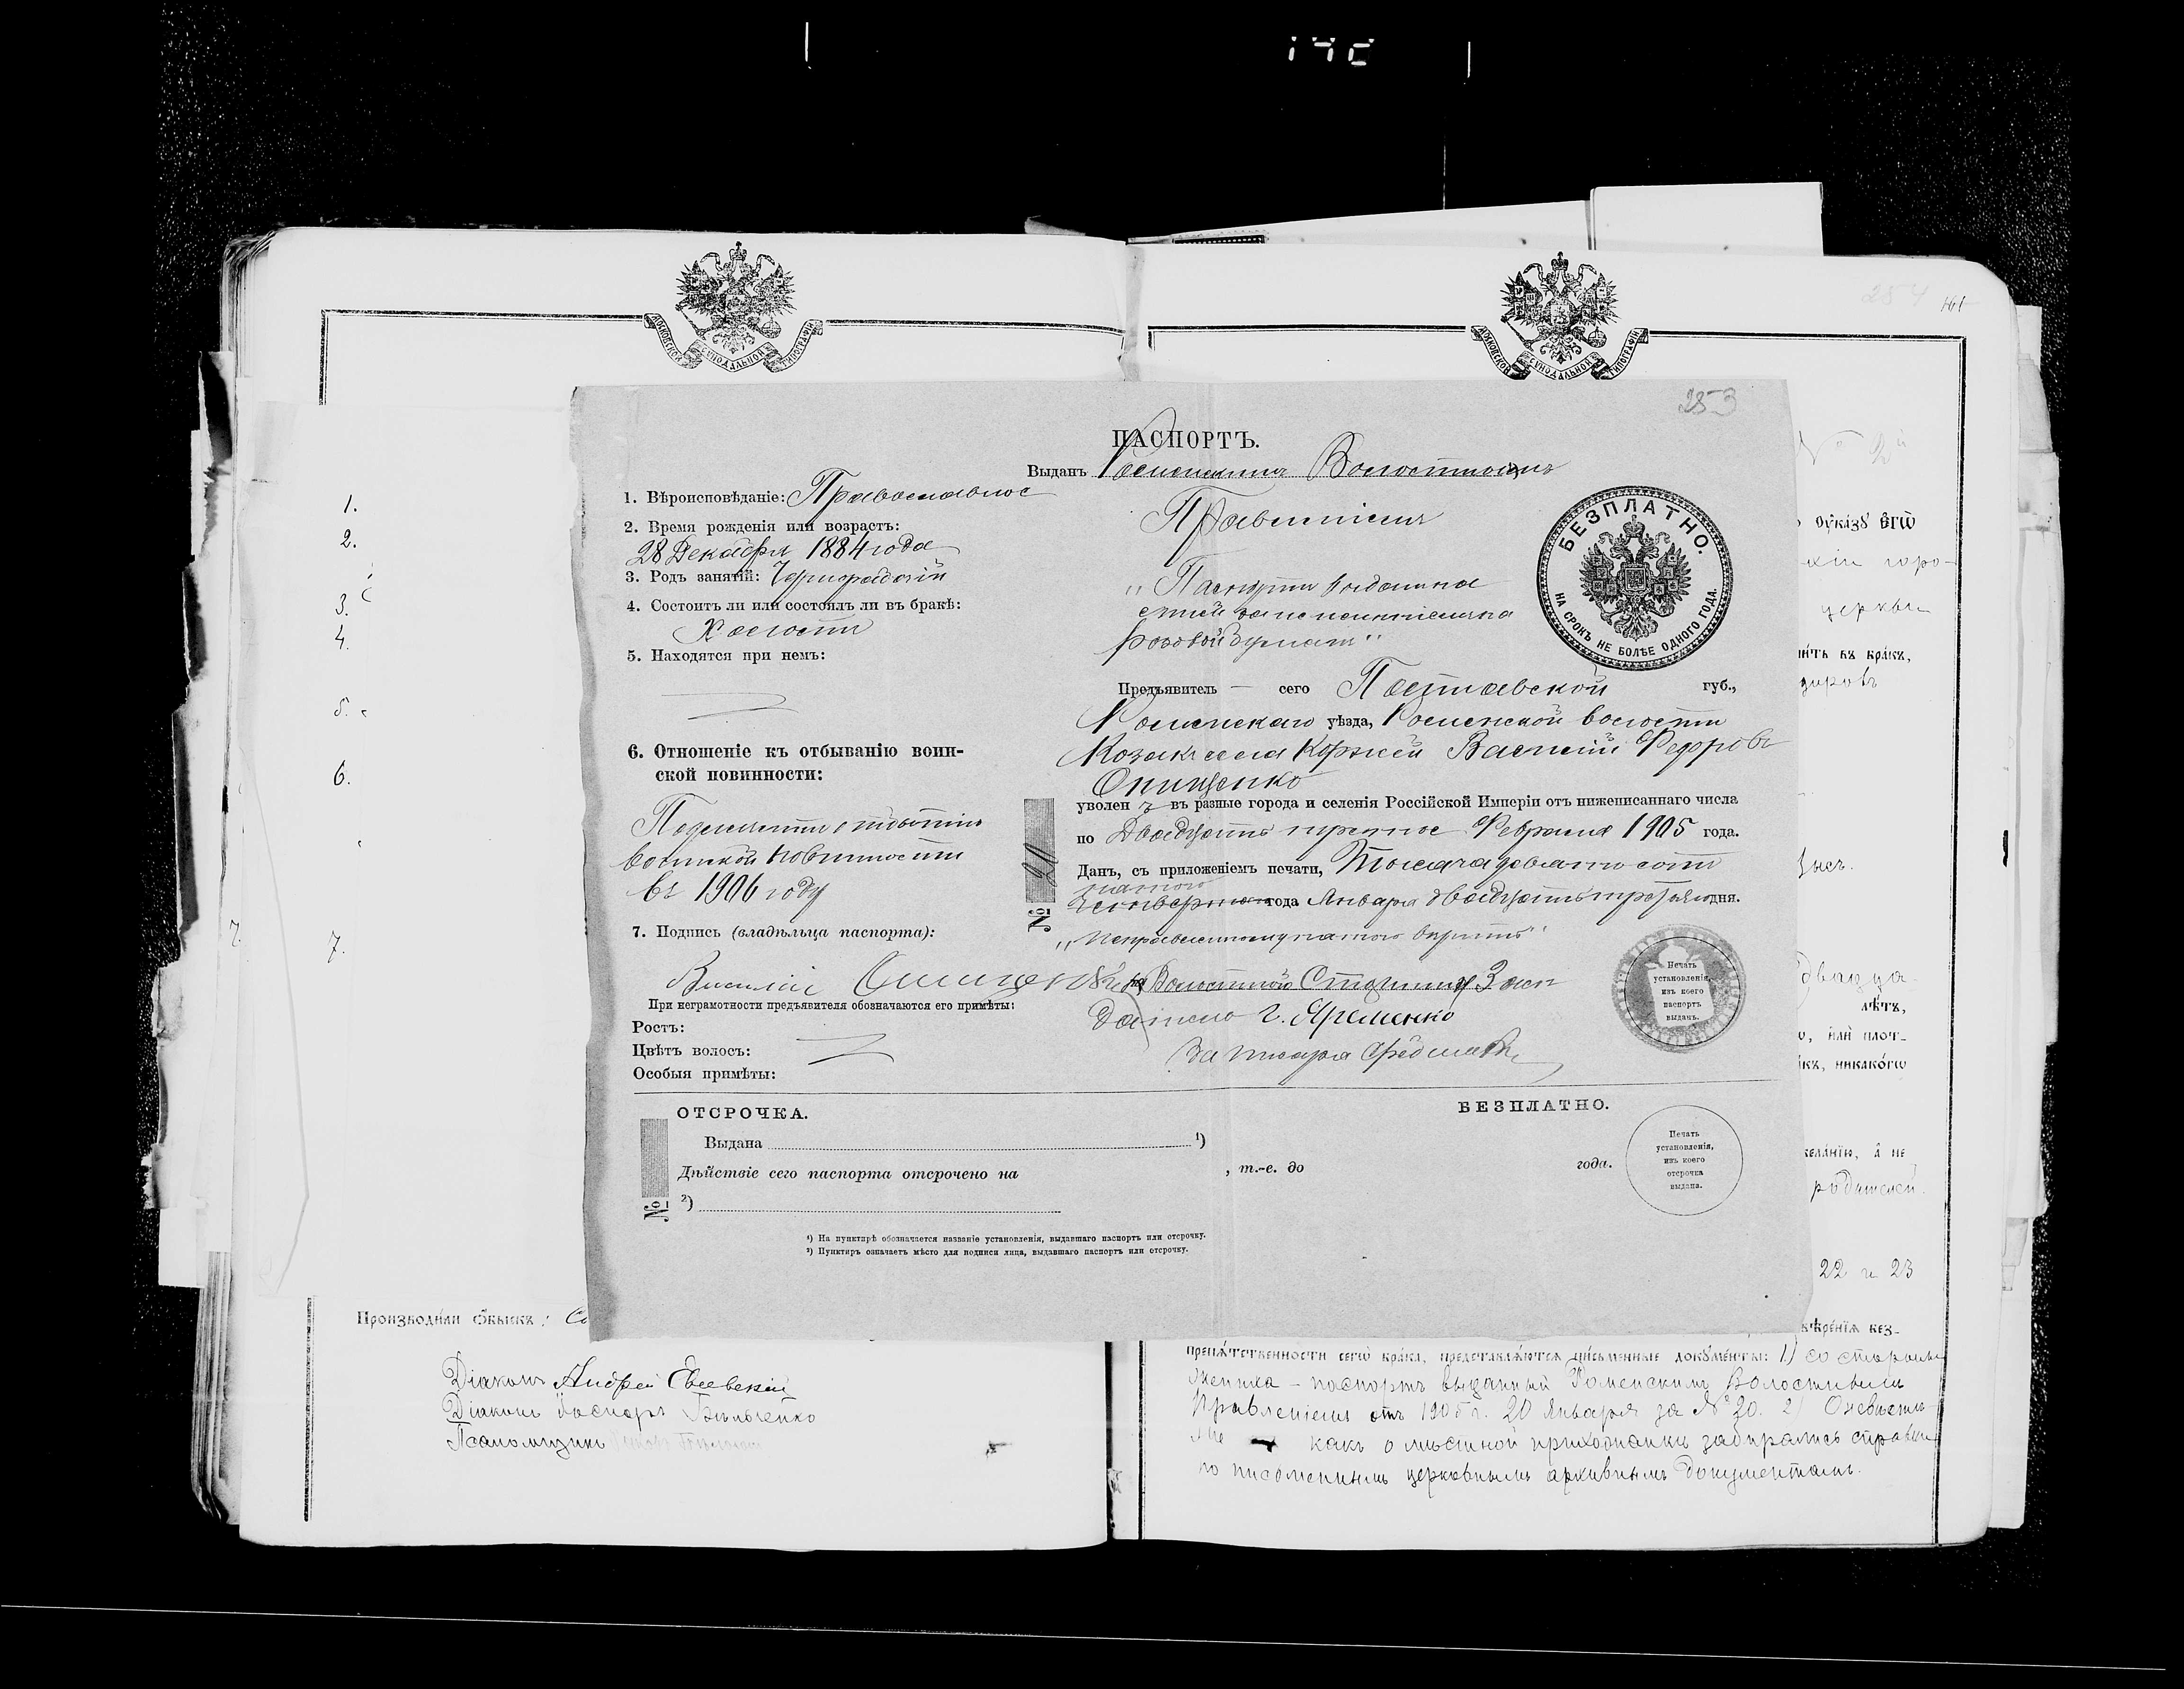 253
ПАСПОРТЪ.
Выданъ Роменскимъ Волостнымъ
Правленіемъ
1. Вѣроисповѣданіе: Православное
2. Время рожденія или возрастъ:
28 Декабря 1884 года
3. Родъ занятій: Чернорабочій
4. Состоитъ ли или состоялъ ли въ бракѣ:
Холостъ
5. Находятся при немъ:
6. Отношеніе къ отбыванію воин-
ской повинности:
Подлежитъ отбытію
воинской повинности
въ 1906 году
7. Подпись (владѣльца паспорта):
Василій Онищенко
При неграмотности предъявителя обозначаются его примѣты:
Ростъ:
Цвѣтъ волосъ:
Особыя примѣты:
БЕЗПЛАТНО.
НА СРОКЪ НЕ БОЛѢЕ ОДНОГО ГОДА.
„Паспортъ выданъ на
розовой бумагѣ"
Предъявитель сего Полтавской губ.,
Роменскаго уѣзда, Роменской волости
Козакъ села Коржей Василій Федоровъ
Онищенко
уволенъ въ разные города и селенія Россійской Имперіи отъ нижеписаннаго числа
по Двадцать третье Февраля 1905 года.
Данъ, съ приложеніемъ печати, Тысяча девятьсотъ
пятого
четвертого года Января двадцать третьяго дня.
№ 20
„Исправленному пятого вѣрить"
Волостной Старшина
Г. Яременко
За писаря
Печать
установленія,
изъ коего
паспортъ
выданъ.
ОТСРОЧКА.
БЕЗПЛАТНО.
Выдана ¹)
Дѣйствіе сего паспорта отсрочено на , т.-е. до года.
№ ²)
Печать
установленія,
изъ коего
отсрочка
выдана.
¹) На пунктирѣ обозначается названіе установленія, выдавшаго паспортъ или отсрочку.
²) Пунктиръ означаетъ мѣсто для подписи лица, выдавшаго паспортъ или отсрочку.
1.
2.
3.
4.
5.
6.
7.
Производили обыскъ:
Діаконъ Андрей Евсевскій
Діаконъ
Псаломщикъ
указу єгѡ
церкви
ить въ бракъ,
лѣтъ,
или плот-
никакогѡ
желанію, а не
родителей
22 и 23
препятственности сегѡ брака, представляются письменные документы: 1) со стороны
жениха – паспортъ выданный Роменскимъ Волостнымъ
Правленіемъ отъ 1905 г. 20 Января за № 20. 2) О невѣстѣ
какъ о мѣстной прихожанкѣ забирались справки
по письменнымъ церковнымъ архивнымъ документамъ.